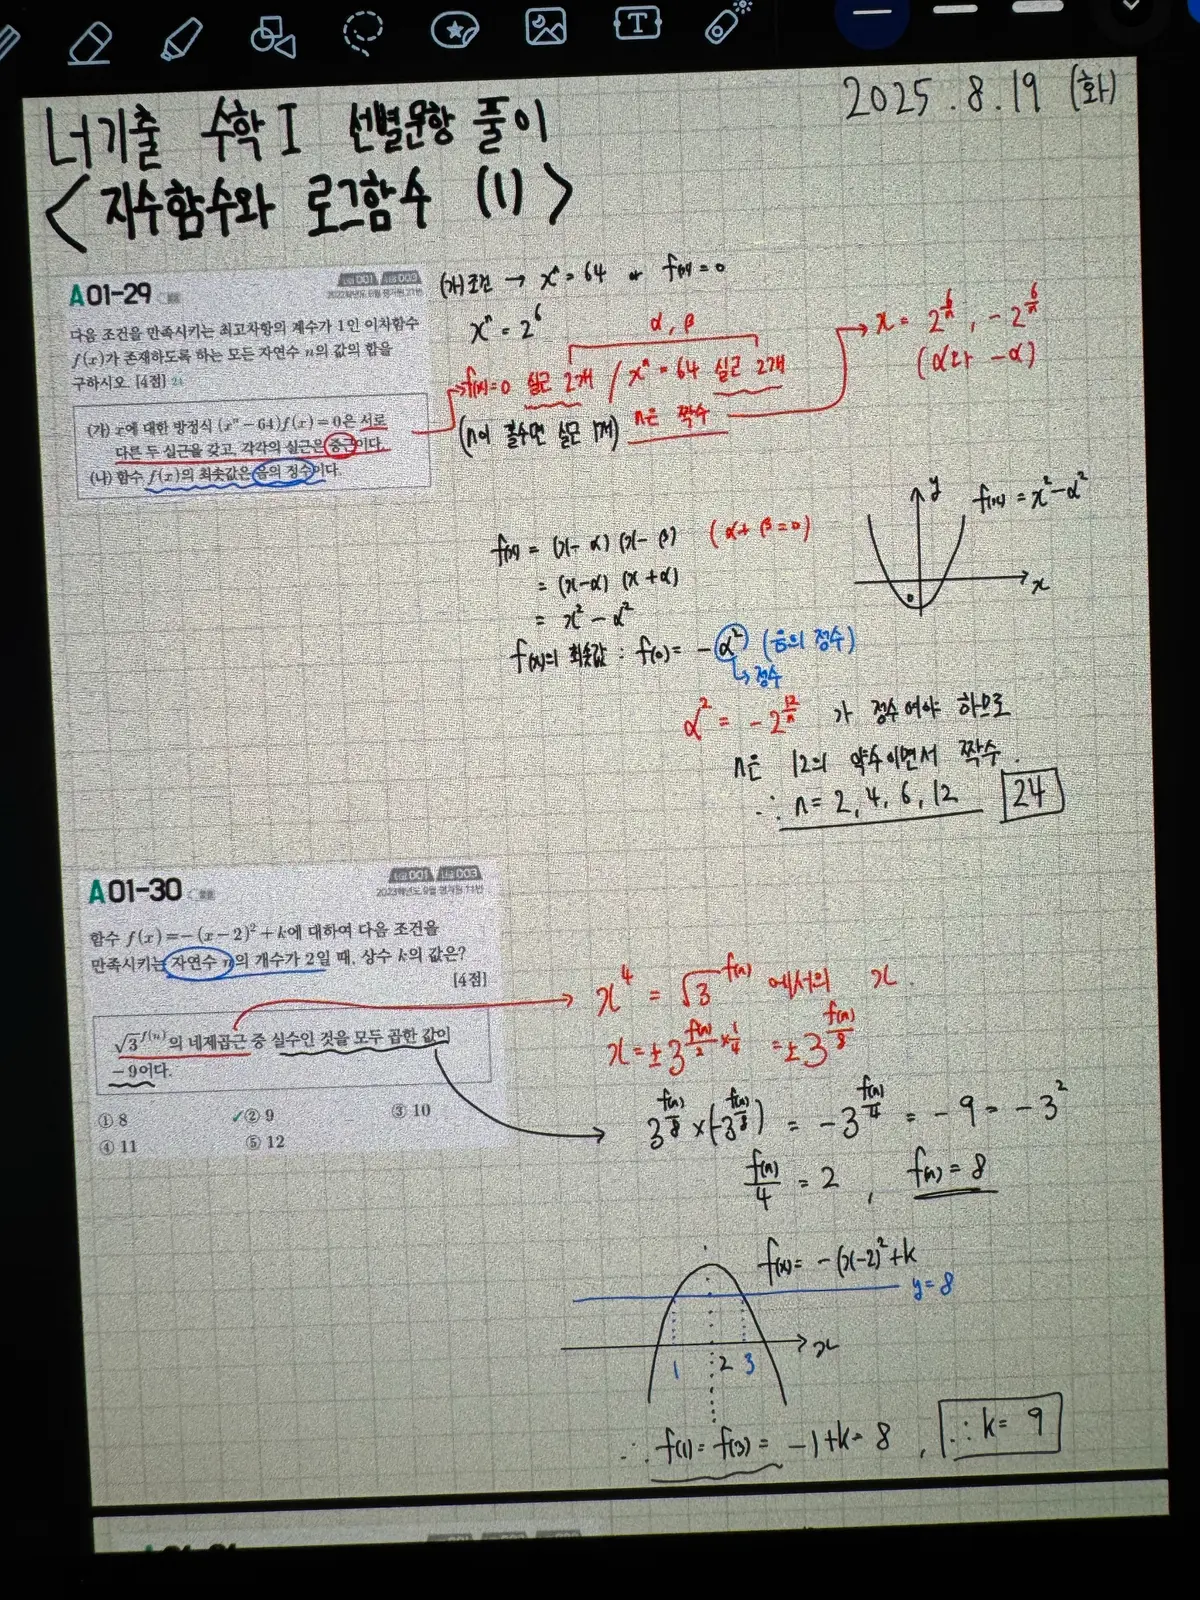 2025.8.19 (화)
너기출 수학 I 선별문항 풀이
< 지수함수와 로그함수 (1) >
A01-29
다음 조건을 만족시키는 최고차항의 계수가 1인 이차함수
f(x)가 존재하도록 하는 모든 자연수 n의 값의 합을
구하시오. [4점] 24
(가) x에 대한 방정식 (xⁿ-64)f(x)=0은 서로
다른 두 실근을 갖고, 각각의 실근은 중근이다.
(나) 함수 f(x)의 최솟값은 음의 정수이다.
(가)조건 → xⁿ = 64 or f(x) = 0
xⁿ = 2⁶
α, β
f(x)=0 실근 2개 / xⁿ = 64 실근 2개
(n이 홀수면 실근 1개) n은 짝수
x = 2^(6/n), -2^(6/n)
(α와 -α)
f(x) = (x-α)(x-β) (α+β=0)
= (x-α)(x+α)
= x² - α²
y
f(x) = x²-α²
x
0
f(x)의 최솟값 : f(0) = -α² (음의 정수)
↳ 정수
α² = -2^(12/n) 가 정수여야 하므로
n은 12의 약수이면서 짝수.
∴ n = 2, 4, 6, 12 24
A01-30
함수 f(x)=-(x-2)²+k에 대하여 다음 조건을
만족시키는 자연수 n의 개수가 2일 때, 상수 k의 값은?
[4점]
√3^f(n)의 네제곱근 중 실수인 것을 모두 곱한 값이
-9이다.
① 8 ✓② 9 ③ 10
④ 11 ⑤ 12
x⁴ = √3^f(n) 에서의 x.
x = ±3^(f(n)/2 × 1/4) = ±3^(f(n)/8)
3^(f(n)/8) × (-3^(f(n)/8)) = -3^(f(n)/4) = -9 = -3²
f(n)/4 = 2 , f(n) = 8
f(x) = -(x-2)²+k
y=8
x
1 2 3
∴ f(1) = f(3) = -1+k = 8 , ∴ k = 9